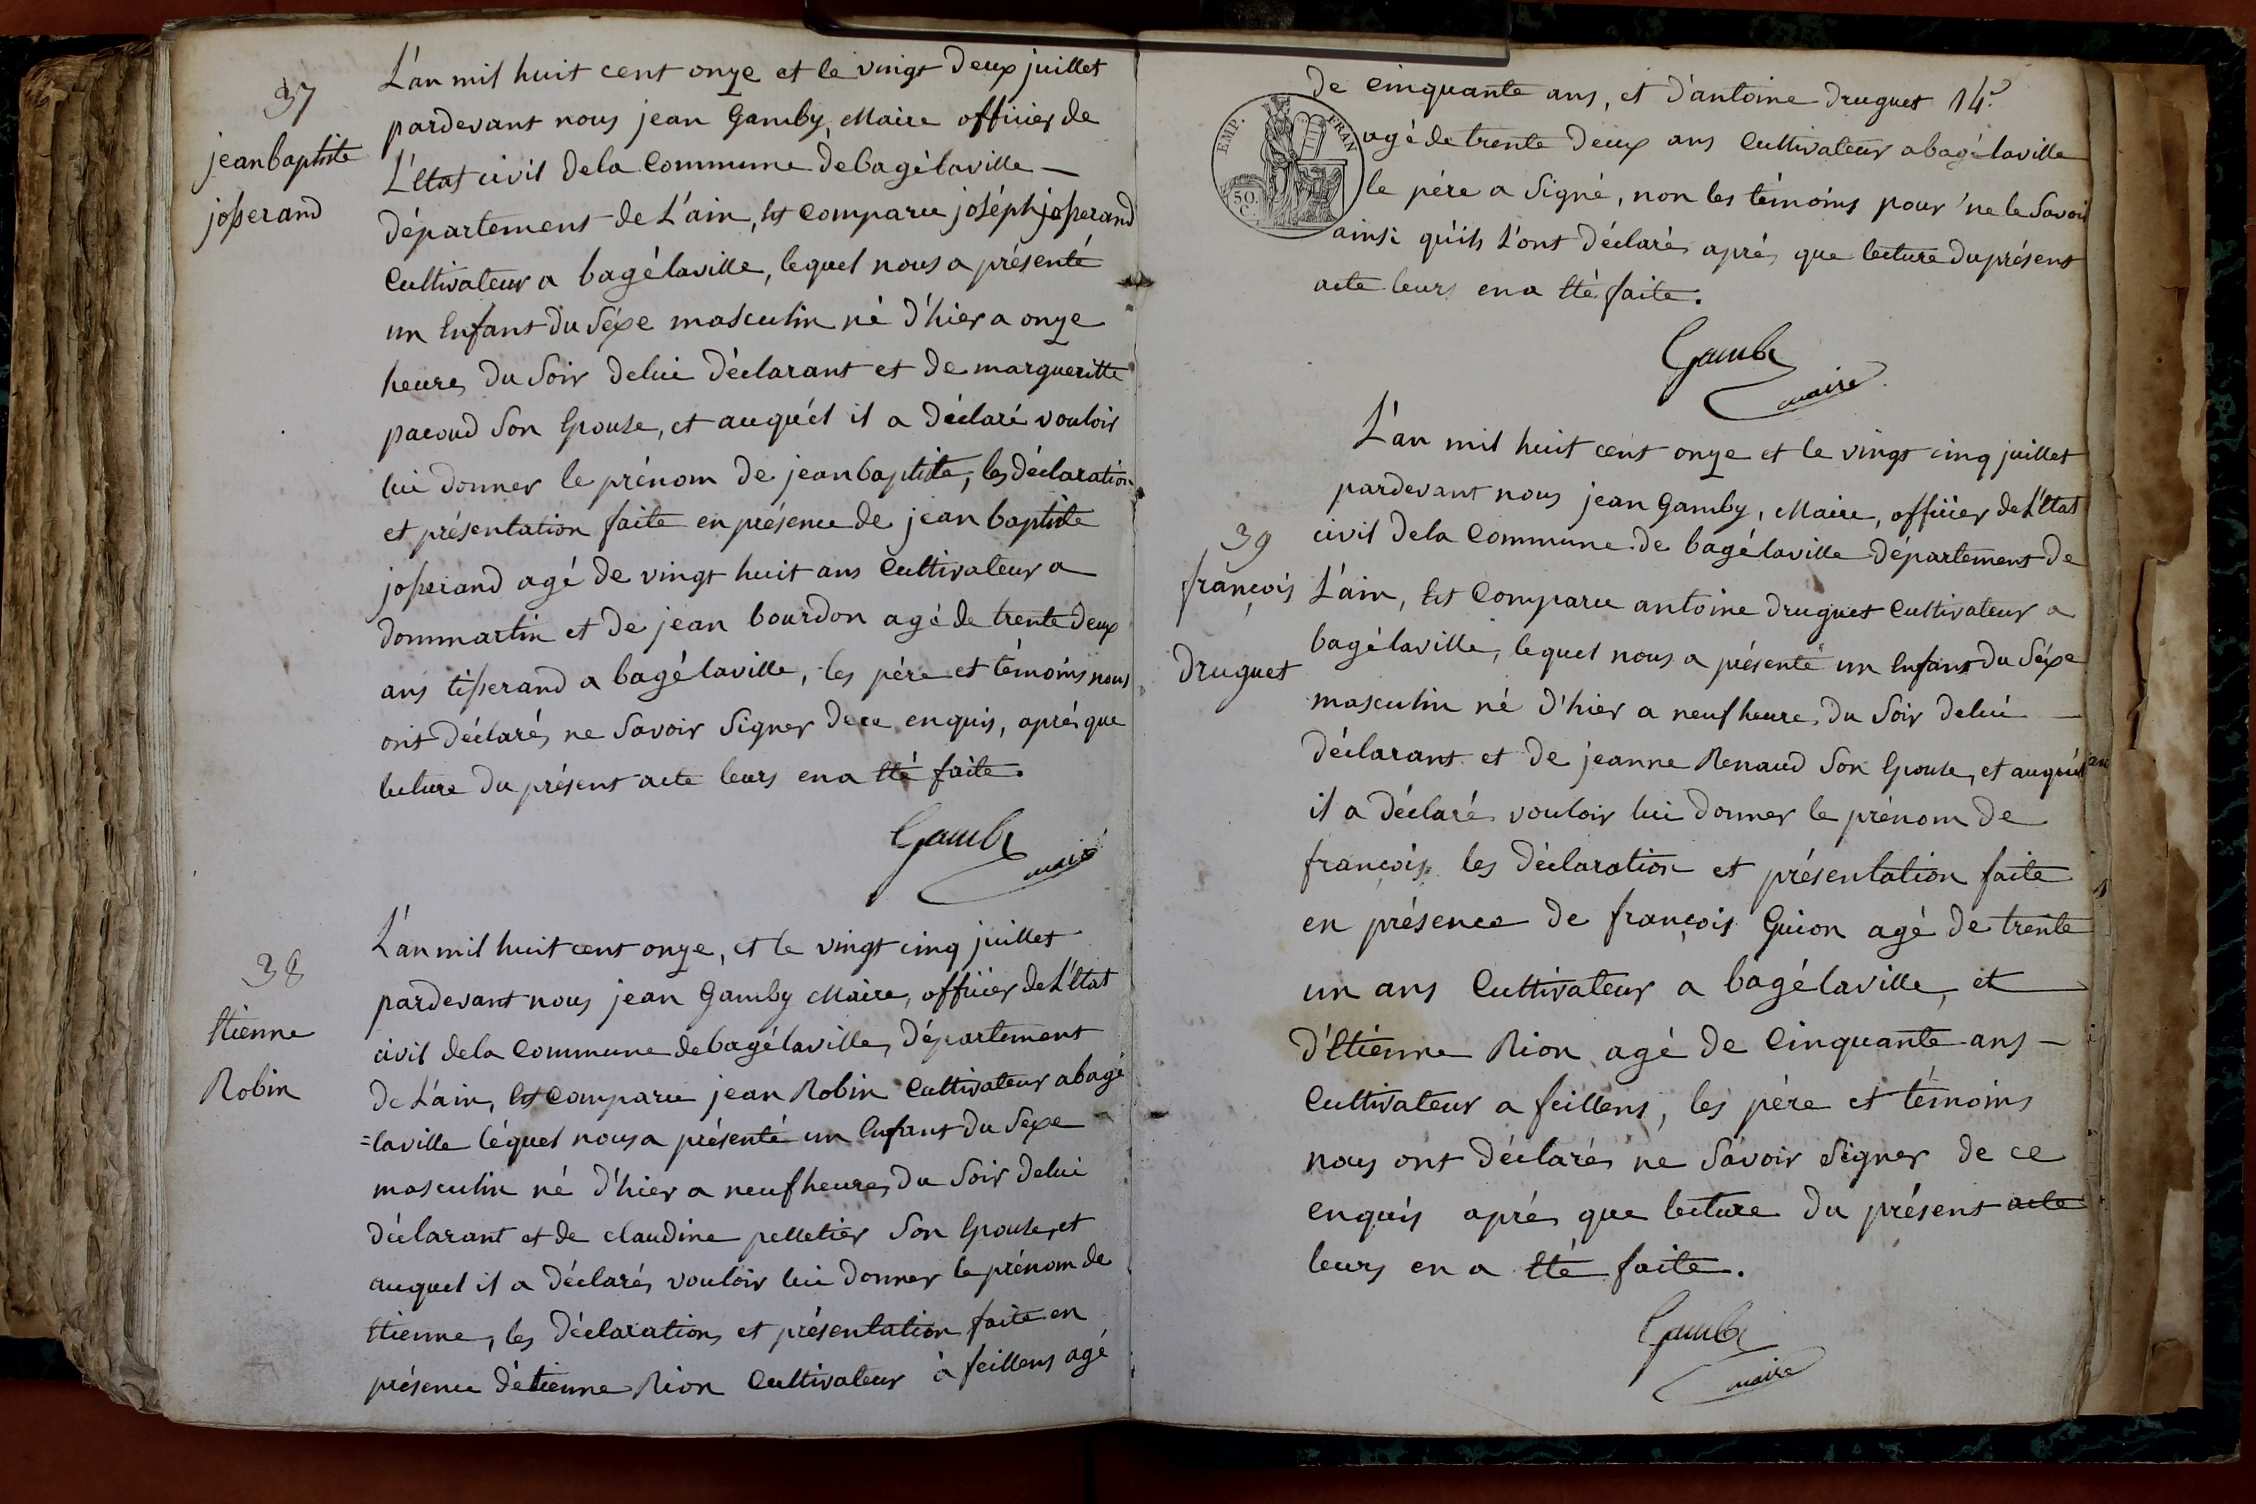 37
jeanbaptiste
josserand
L'an mil huit cent onze et le vingt deux juillet
pardevant nous jean Gamby, Maire officier de
L'Etat civil dela Commune de bagélaville —
département de L'ain, Est Comparu joséph josserand
Cultivateur a bagélaville, lequel nous a présenté
un Enfant du Séxe masculin né d'hier a onze
heures du Soir delui déclarant et de margueritte
pacoud Son Epouse, et auquél il a déclaré vouloir
lui donner le prénom de jeanbaptiste, les déclaration
et présentation faite en présence de jean baptiste
josserand agé de vingt huit ans Cultivateur a
dommartin et de jean bourdon agé de trente deux
ans tisserand a bagélaville, les pére et témoins nous
ont déclarés ne Savoir Signer dece enquis, aprés que
lecture du présent acte leurs en a Eté faite.
Gamby
maire
38
Etienne
Robin
L'an mil huit cent onze, et le vingt cinq juillet
pardevant nous jean Gamby Maire, officier de L'Etat
civil dela Commune debagélaville, département
de L'ain, Est Comparu jean Robin Cultivateur abagé
=laville léquel nous a présenté un Enfant du Sexe
masculin né d'hier a neuf heures du Soir delui
déclarant et de claudine pelletier Son Epouse, et
auquel il a déclarés vouloir lui donner le prénom de
Etienne, les déclarations et présentation faite en
présence d'étienne Rion Cultivateur à feillens agé
EMP. FRAN
50.
C.
de Cinquante ans, et d'antoine druguet 14.e
agé de trente deux ans Cultivateur abagélaville
le pére a Signé, non les témoins pour ne le Savoir
ainsi qu'ils L'ont déclarés aprés que lecture du présent
acte leurs en a Eté faite.
Gamby
maire
39
françois
druguet
L'an mil huit cent onze et le vingt cinq juillet
pardevant nous jean Gamby, Maire, officier de L'Etat
civil dela Commune de bagélaville département de
L'ain, Est Comparu antoine druguet Cultivateur a
bagélaville, lequel nous a présenté un Enfant du Séxe
masculin né d'hier a neuf heures du Soir delui —
déclarant et de jeanne Renaud Son Epouse, et auquél
il a déclaré vouloir lui donner le prénom de
françois. les déclaration et présentation faite
en présence de françois Guion agé de trente
un ans Cultivateur a bagélaville, et
d'Etienne Rion agé de Cinquante ans —
Cultivateur a feillens, les pére et témoins
nous ont déclarés ne Savoir Signer de ce
enquis aprés que lecture du présent acte
leurs en a Eté faite.
Gamby
maire